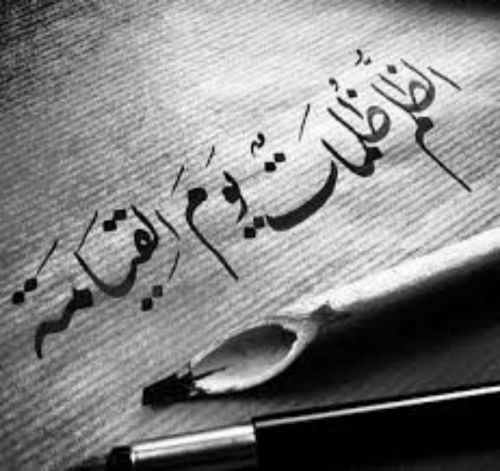 الظلمُ ظُلُمَاتٌ يَومَ القِيَامَةِ